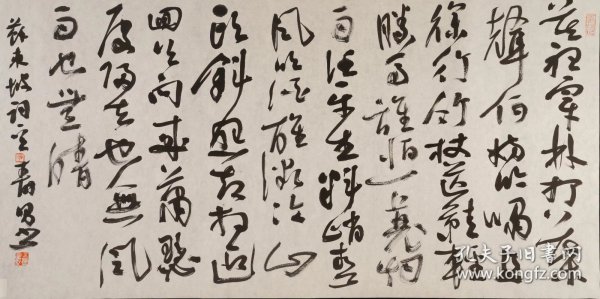 莫聽穿林打葉
聲何妨吟嘯且
徐行竹杖芒鞋輕
勝馬誰怕一蓑烟
雨任平生料峭春
風吹酒醒微冷山
頭斜照却相迎
回首向來蕭瑟
處歸去也無風
雨也無晴
蘇東坡詞
孔夫子旧书网
www.kongfz.com